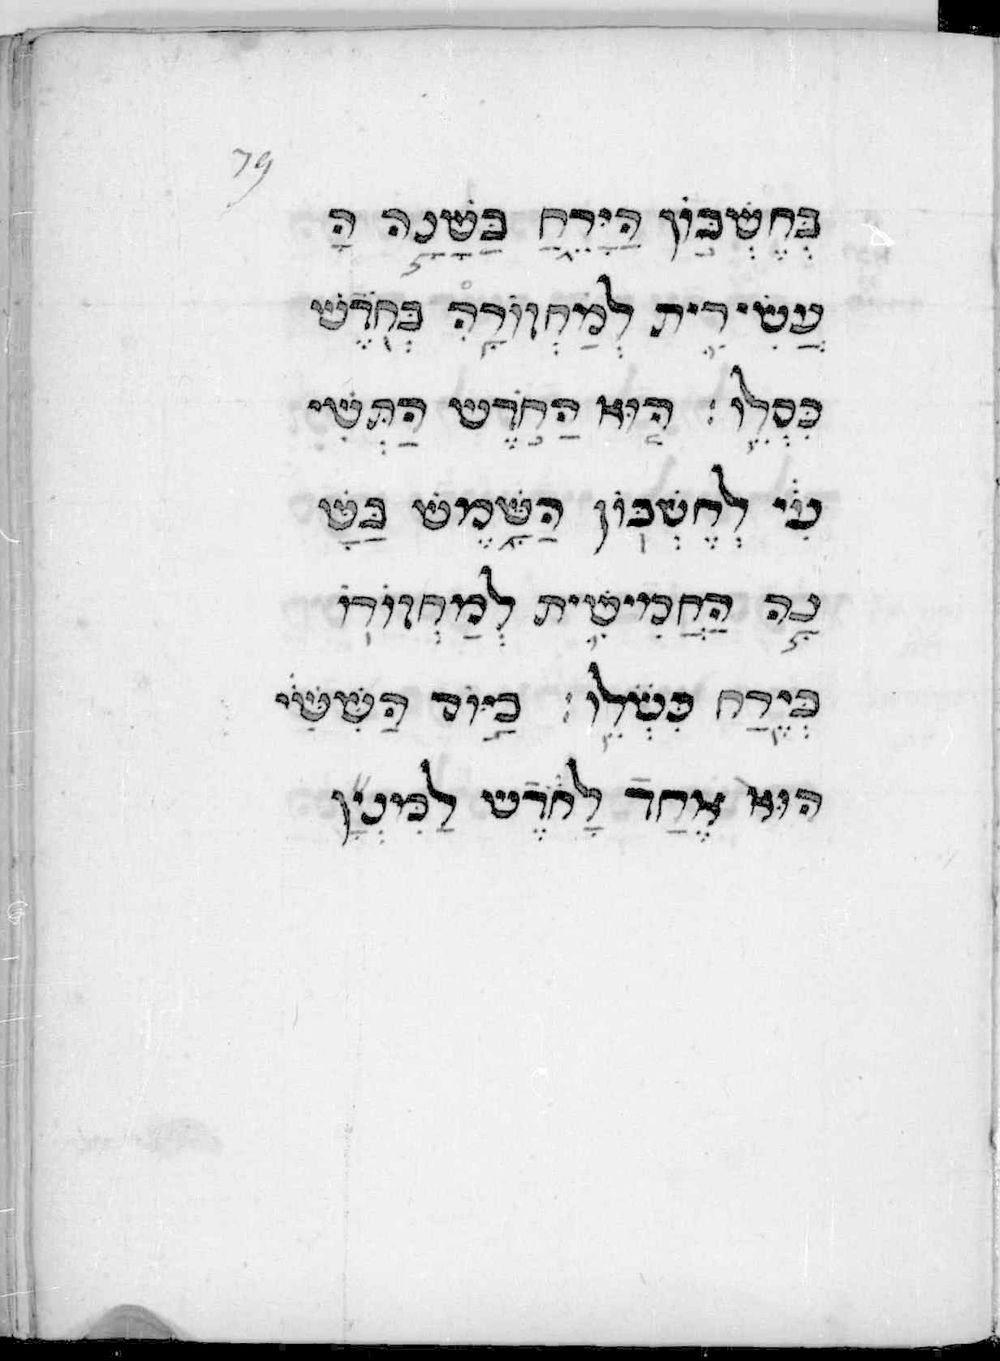 79
בְּחֶשְׁבּוֹן הַיָּרֵחַ בַּשָּׁנָה הָ
עֲשִׂירִית לְמַחְזוֹרָהּ בְּחֹדֶשׁ
כִּסְלֵו׃ הוּא הַחֹדֶשׁ הַתְּשִׁי
עִי לְחֶשְׁבּוֹן הַשֶּׁמֶשׁ בַּשָּׁ
נָה הַחֲמִישִׁית לְמַחְזוֹרוֹ
בְּיֶרַח כִּסְלֵו׃ בַּיּוֹם הַשִּׁשִּׁי
הוּא אֶחַד לַחֹדֶשׁ לַמִּנְיָן